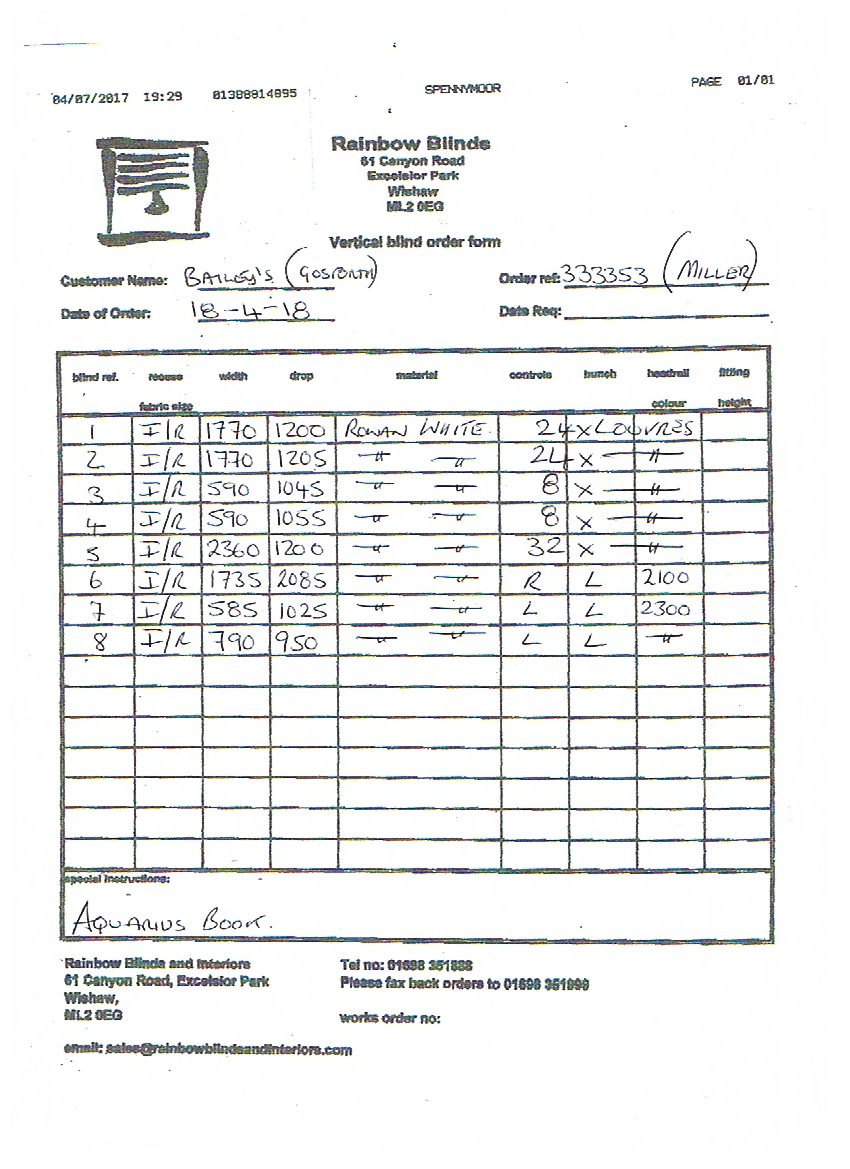 04/07/2017 19:29 01388814895 SPENNYMOOR PAGE 01/01
Rainbow Blinds
61 Canyon Road
Excelsior Park
Wishaw
ML2 0EG
Vertical blind order form
Customer Name: BAILEY'S (GOSFORTH) Order ref: 333353 (MILLER)
Date of Order: 18-4-18 Date Req:
blind ref. recess width drop material controls bunch headrail fitting
fabric size colour height
1 I/R 1770 1200 ROWAN WHITE. 24 x LOUVRES
2 I/R 1770 1205 〃 〃 24 x 〃
3 I/R 590 1045 〃 〃 8 x 〃
4 I/R 590 1055 〃 〃 8 x 〃
5 I/R 2360 1200 〃 〃 32 x 〃
6 I/R 1735 2085 〃 〃 R L 2100
7 I/R 585 1025 〃 〃 L L 2300
8 I/R 790 950 〃 〃 L L 〃
special instructions:
AQUARIUS BOOK.
Rainbow Blinds and Interiors Tel no: 01698 351888
61 Canyon Road, Excelsior Park Please fax back orders to 01698 351999
Wishaw,
ML2 0EG works order no:
email: sales@rainbowblindsandinteriors.com